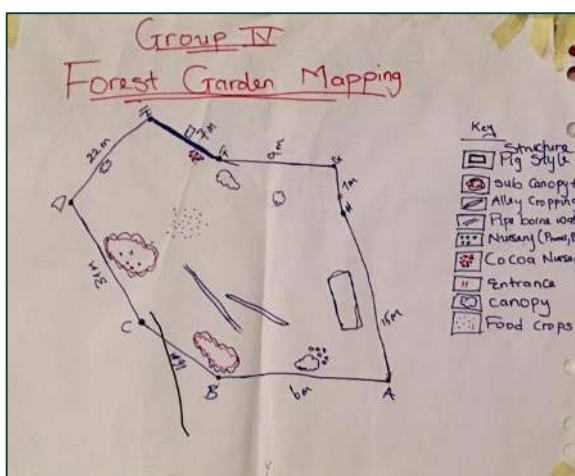 Group IV
Forest Garden Mapping
22m
7m
D
7m
31m
15m
C
B
6m
A
Key
Structure
Pig Style
Sub Canopy
Alley Cropping
Pipe borne
Nursery
Cocoa
Entrance
Canopy
Food Crops